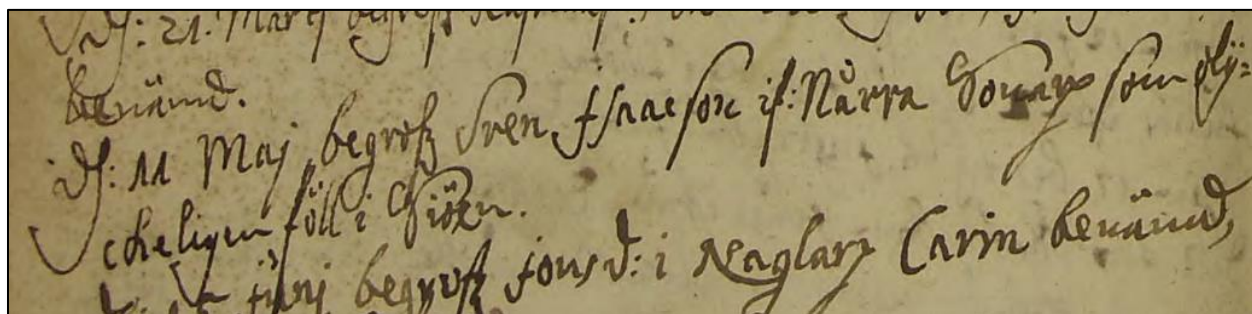 d: 21. Martij begrofz
benämd.
d: 11 Maj begrofz Sven Jsaacson if: Nårra som oly=
cheligen föll i Siöen.
Junij begrofz Jons d: i Naglarp Carin benämd,